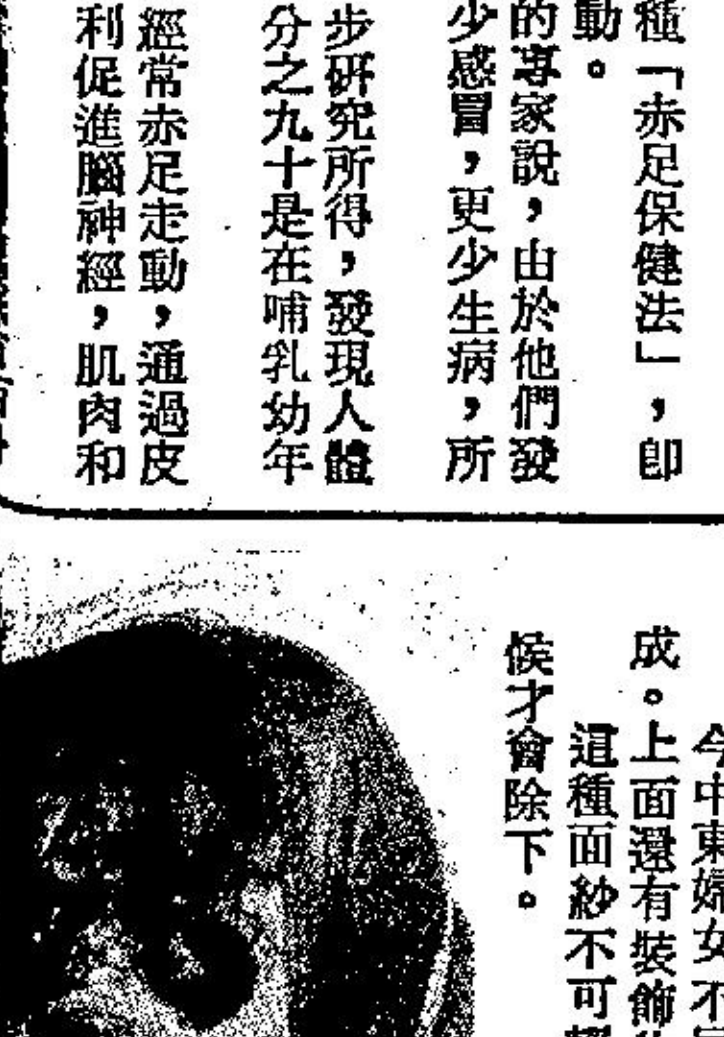 種「赤足保健法」，即
動。
的專家說，由於他們發
少感冒，更少生病，所
步研究所得，發現人體
分之九十是在哺乳幼年
經常赤足走動，通過皮
利促進腦神經，肌肉和
今中東婦女不
成。上面還有裝飾
這種面紗不可
候才會除下。